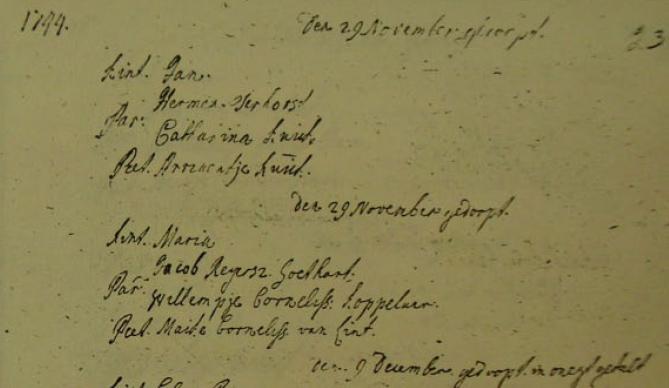 1744.
Den 29 November gedoopt. 23
Kint. Jan.
Par: Hermen Terhorst
Catharina Kuit.
Pet. Annaatje Kuit.
Den 29 November gedoopt.
Kint. Maria
Par: Jacob Reyersz. Goethart.
Willempje Corneliss: Koppelaar.
Pet. Maike Corneliss van Lint.
den 9 December gedoopt in onegt geteelt
Kint.